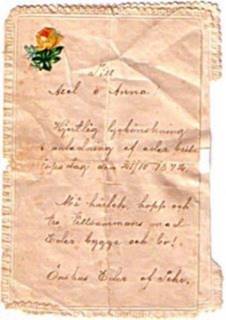 Till
Axel o Anna!
Hjertlig lyckönskning
i anledning af eder bröl-
lopsdag den 21/10
Må kärlek, hopp och
tro tillsammans med
Eder, bygge och bo!.
Önskas Eder af